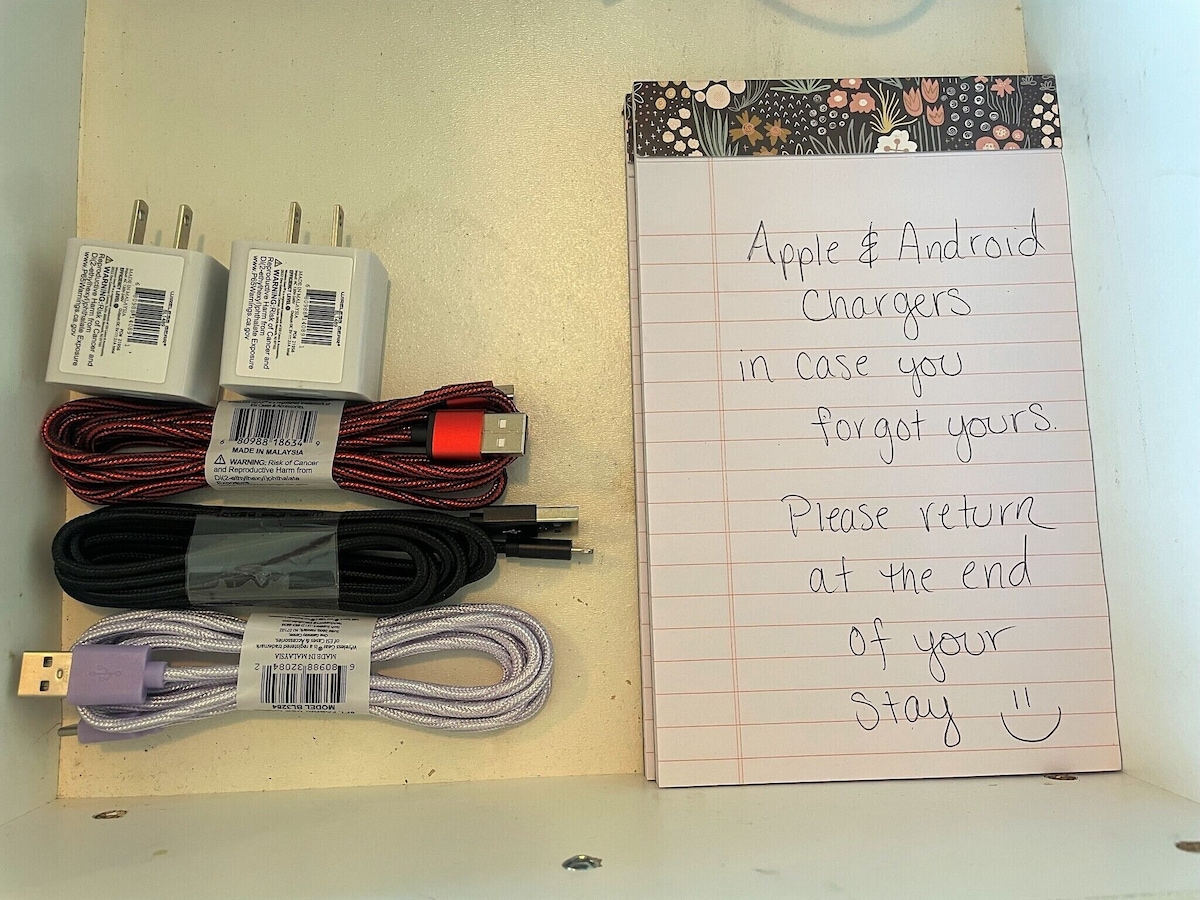 Apple & Android
Chargers
in case you
forgot yours.
Please return
at the end
of your
stay
MADE IN MALAYSIA
⚠ WARNING: Risk of Cancer and
Reproductive Harm from
Di(2-ethylhexyl)phthalate Exposure
www.P65Warnings.ca.gov
MADE IN MALAYSIA
⚠ WARNING: Risk of Cancer and
Reproductive Harm from
Di(2-ethylhexyl)phthalate Exposure
www.P65Warnings.ca.gov
6 80988 18634 9
MADE IN MALAYSIA
⚠ WARNING: Risk of Cancer
and Reproductive Harm from
Di(2-ethylhexyl)phthalate
Wireless Gear® is a registered trademark
of ESI Cases & Accessories.
MADE IN MALAYSIA
6 80988 32084 2
MODEL BL3284